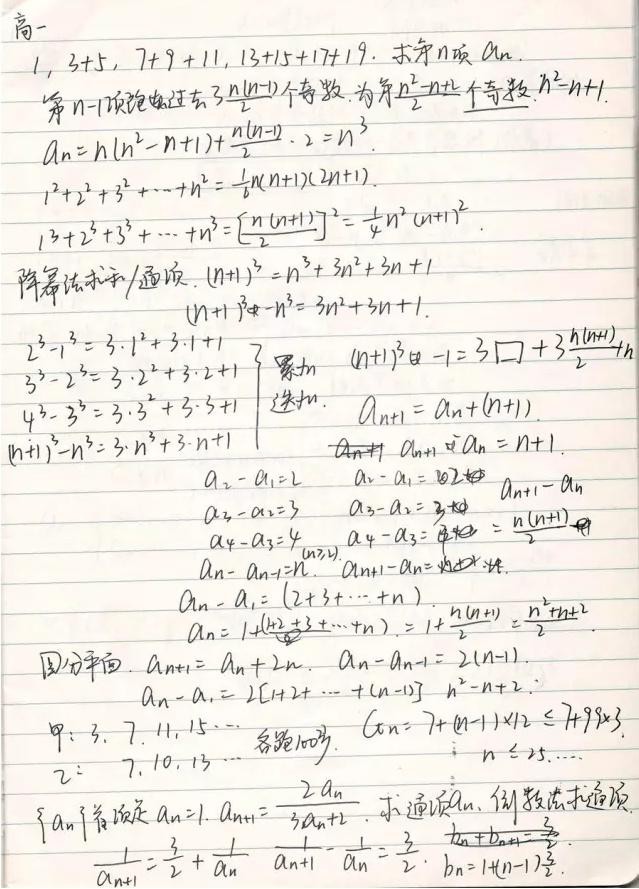 高一
1, 3+5, 7+9+11, 13+15+17+19. 求第n项 an.
第n-1项 过去了 n(n-1)/2 个奇数. 为第 (n²-n+2)/2 个奇数. n²-n+1.
an=n(n²-n+1)+n(n-1)/2·2=n³.
1²+2²+3²+…+n²=1/6n(n+1)(2n+1).
1³+2³+3³+…+n³=[n(n+1)/2]²=1/4n²(n+1)².
降幂法求和/通项. (n+1)³=n³+3n²+3n+1
(n+1)³-n³=3n²+3n+1.
2³-1³=3·1²+3·1+1
3³-2³=3·2²+3·2+1
4³-3³=3·3²+3·3+1
(n+1)³-n³=3·n³+3·n+1
累加 迭加. (n+1)³-1=3□+3n(n+1)/2+n
an+1=an+(n+1).
an+1-an=n+1.
a2-a1=2 a2-a1=2 an+1-an
a3-a2=3 a3-a2=3
a4-a3=4 a4-a3= =n(n+1)/2
an-an-1=n.(n≥2) an+1-an=
an-a1=(2+3+…+n).
an=1+(1+2+3+…+n).=1+n(n+1)/2=(n²+n+2)/2.
圆分平面. an+1=an+2n. an-an-1=2(n-1).
an-a1=2[1+2+…+(n-1)] n²-n+2.
甲: 3. 7. 11, 15… 各跑100步. Cn=7+(n-1)×12≤7+99×3.
乙: 7, 10, 13… n≤25.…
{an}首项是an=1. an+1=2an/(3an+2). 求通项an. 倒数法求通项.
1/an+1=3/2+1/an 1/an+1-1/an=3/2. bn+bn+1=3/2.
bn=1+(n-1)3/2.